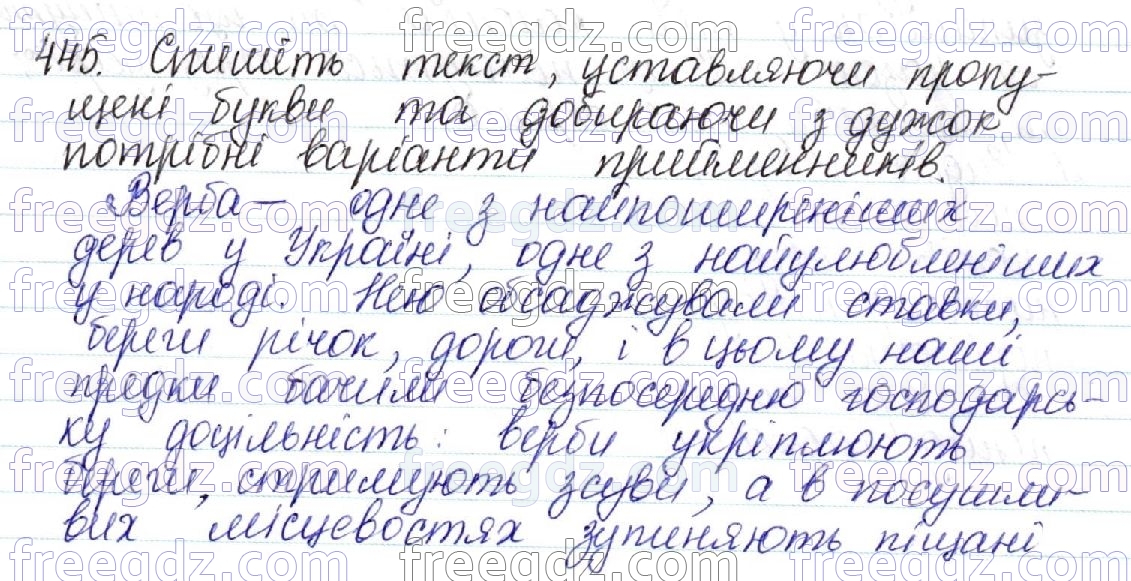 445. Спишіть текст, уставляючи пропу-
щені букви та добираючи з дужок
потрібні варіанти прийменників.
Верба — одне з найпоширеніших
дерев у Україні, одне з найулюбленіших
у народі. Нею обсаджували ставки,
береги річок, дороги, і в цьому наші
предки бачили безпосередню господарсь-
ку доцільність: верби укріплюють
береги, стримують зсуви, а в посушли-
вих місцевостях зупиняють піщані